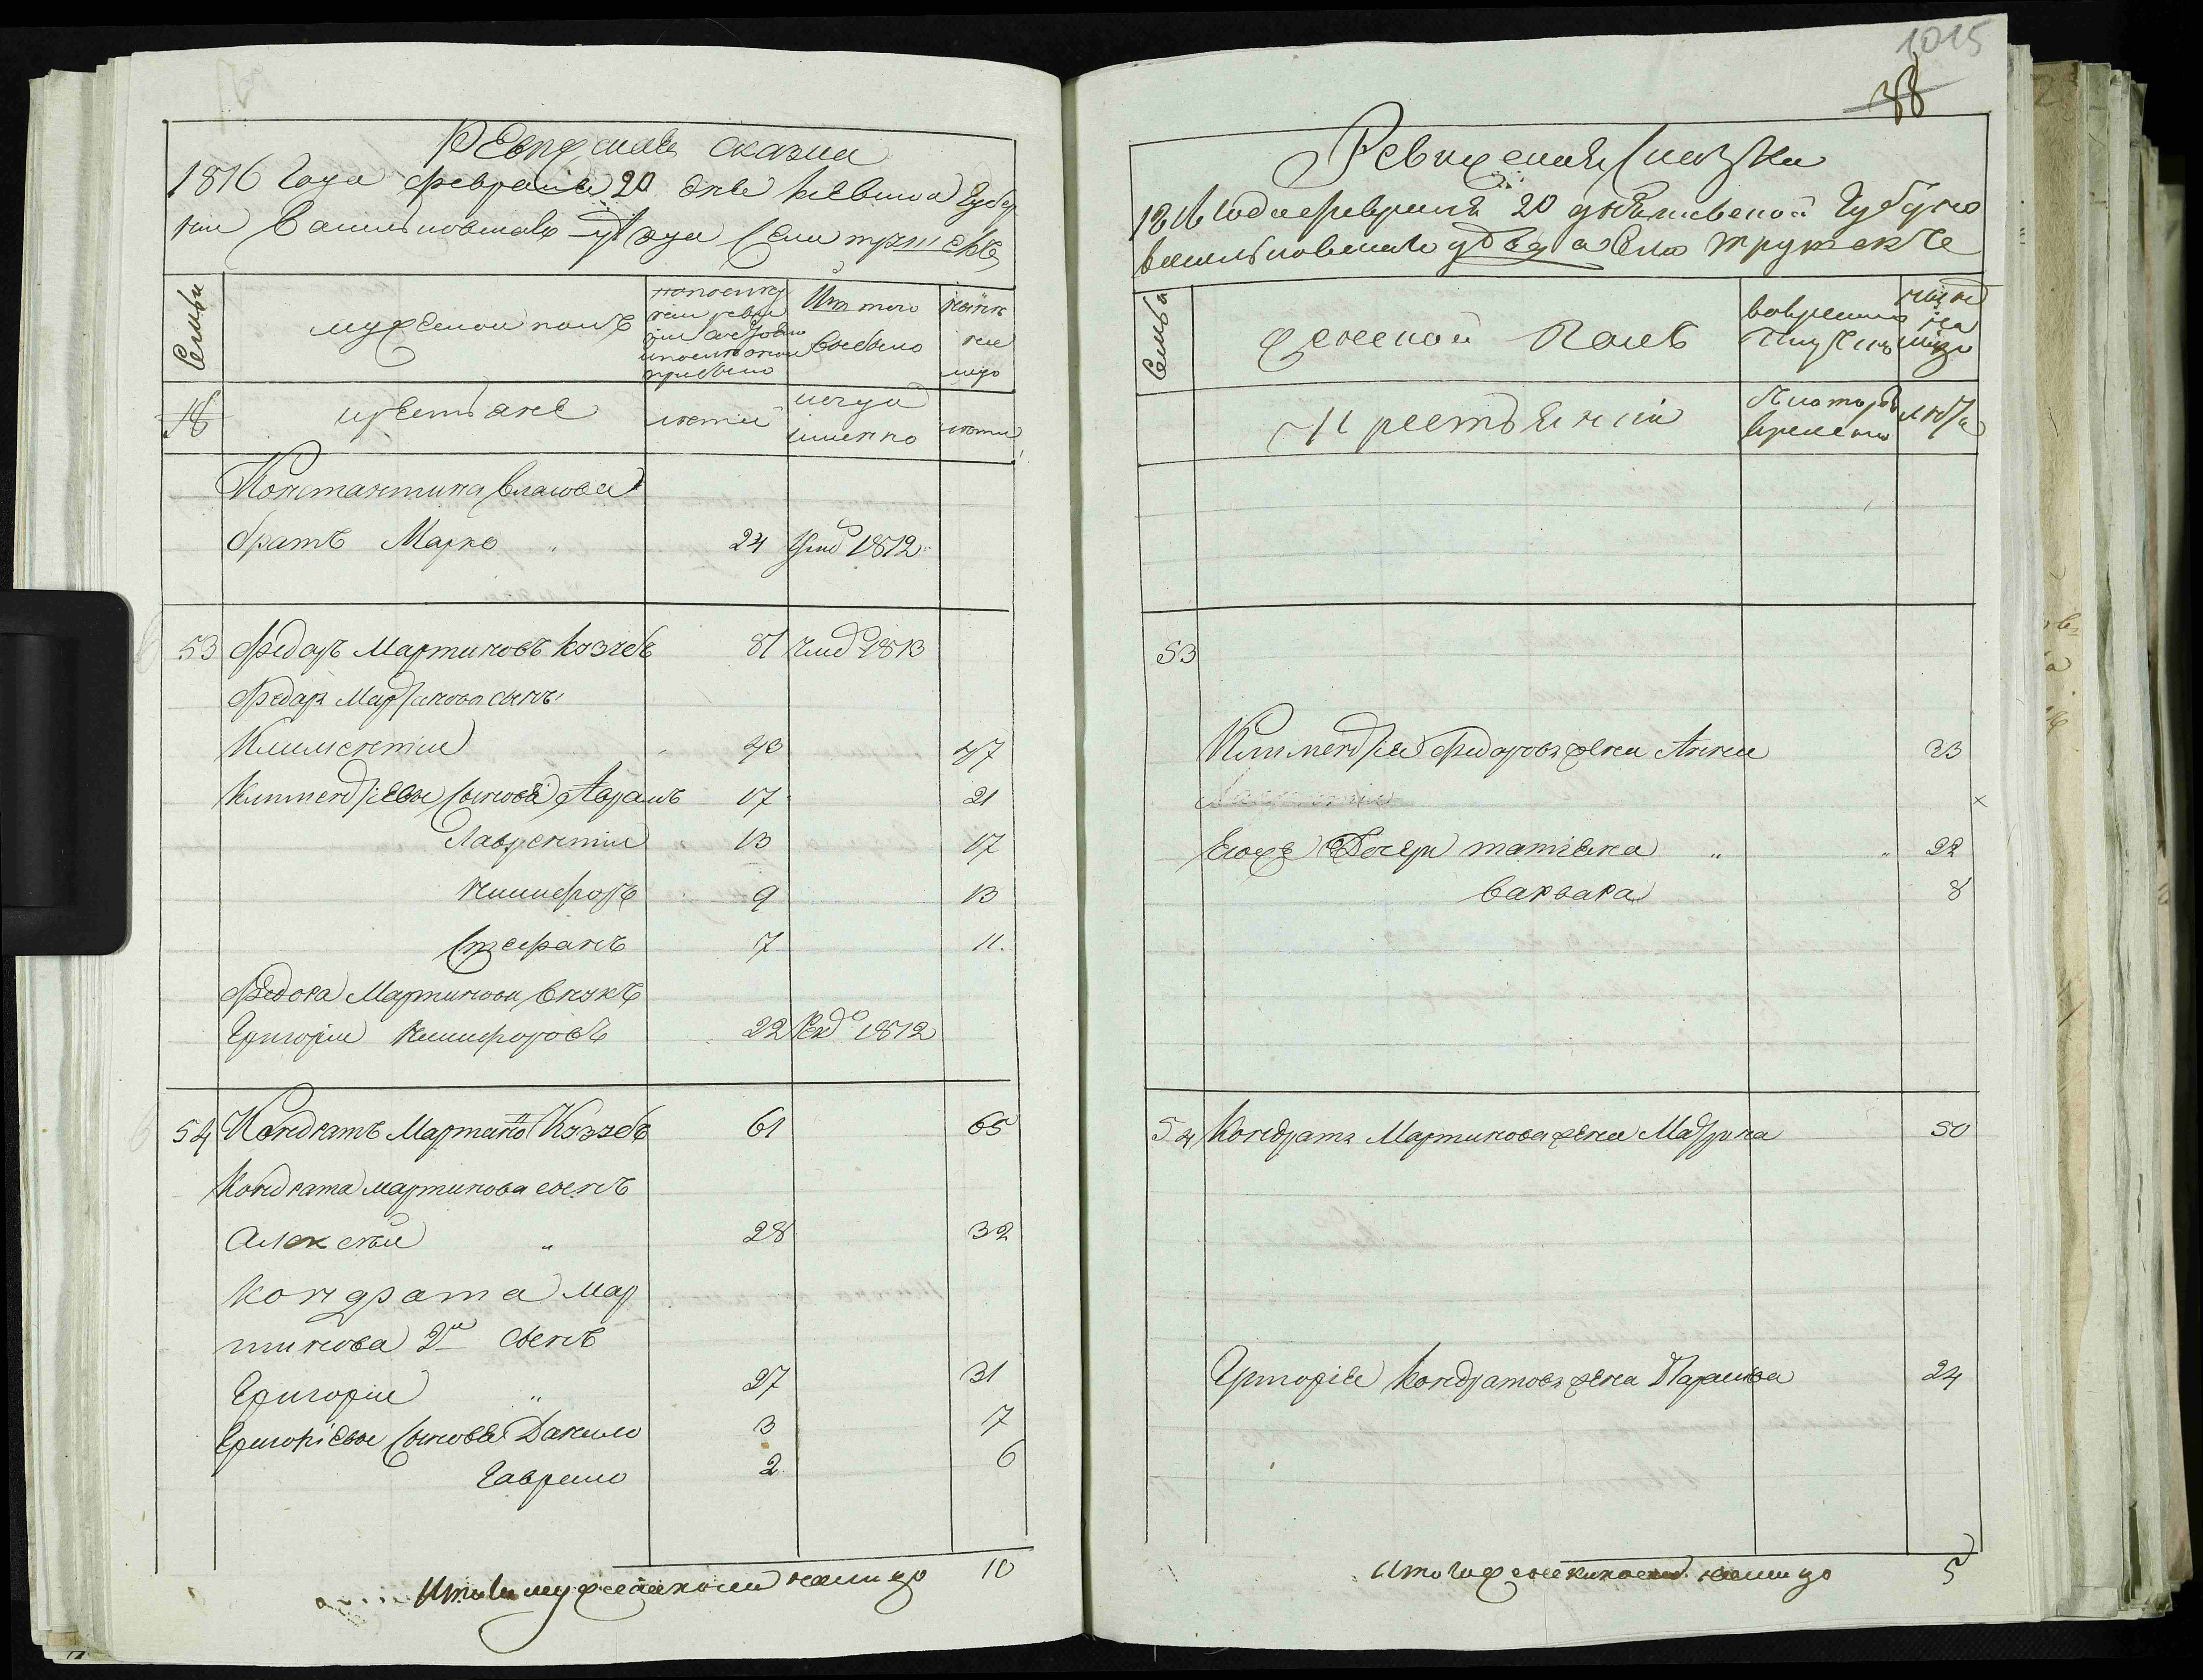 1015
38
Ревижская сказка
1816 Года февраля 20 дня Киевской Губер
нии Васильковскаго уезда Села
Семьи
мужеской полъ
Изъ того
выбыло
ныне
на
лицо
18
крестьяне
лета
когда
именно
лета
Константина Власова
братъ Марко 24 Умр 1812
53 Федоръ Мартиновъ Козубъ 81 умр 1813
Федора Мартинова сынъ
Климентий 43 47
Климентіевы сыновья Аврамъ 17 21
Лаврентий 13 17
Никифоръ 9 13
Стефанъ 7 11.
Федора Мартинова внукъ
Григорій Никифоровъ 22 1812
54 Кондратъ Мартино Козубъ 61 65
Кондрата мартинова сынъ
Алексей 28 32
Кондрата Мар
тинова 2й сынъ
Григорій 27 31
Григоріевы сыновья Данило 3 7
Гаврило 2 6
Итого мужеска полу налицо 10
Ревижская сказка
1816 Года февраля 20 дня Киевской Губерни
васильковскаго уезда Села
Семьи
женской полъ
ныне
на
лицо
Крестьянки
лета
53
Климентія Федорова жена Анна 33
Егожъ Дочери татіяна 22
варвара 8
54 Кондрата Мартинова жена Мотрона 50
Григорія Кондратова жена Параскова 24
Итого женска полу налицо 5